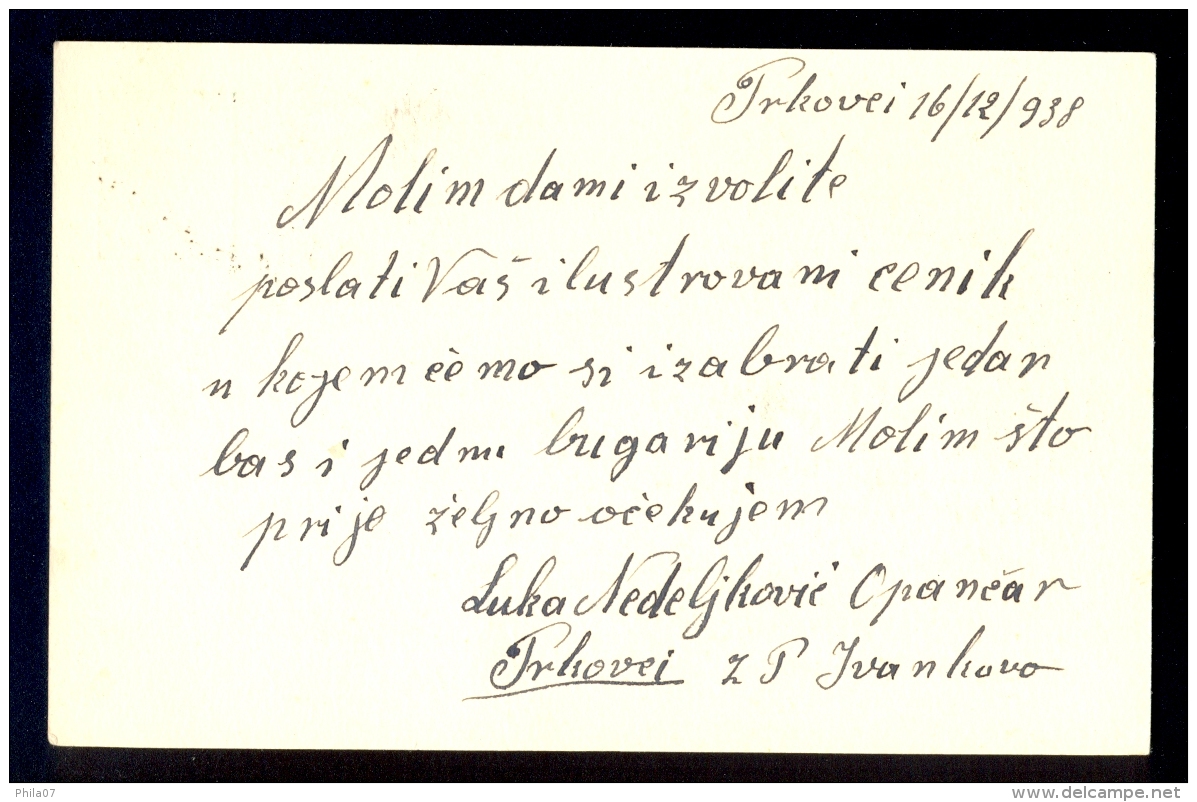 Prkovci 16/12/938
Molim da mi izvolite
poslati Vaš ilustrovani cenik
u kojem ćemo si izabrati jedan
bas i jednu bugariju Molim što
prije željno očekujem
Luka Nedeljković Opančar
Prkovci z P Ivankovo
Phila07
delcampe.net